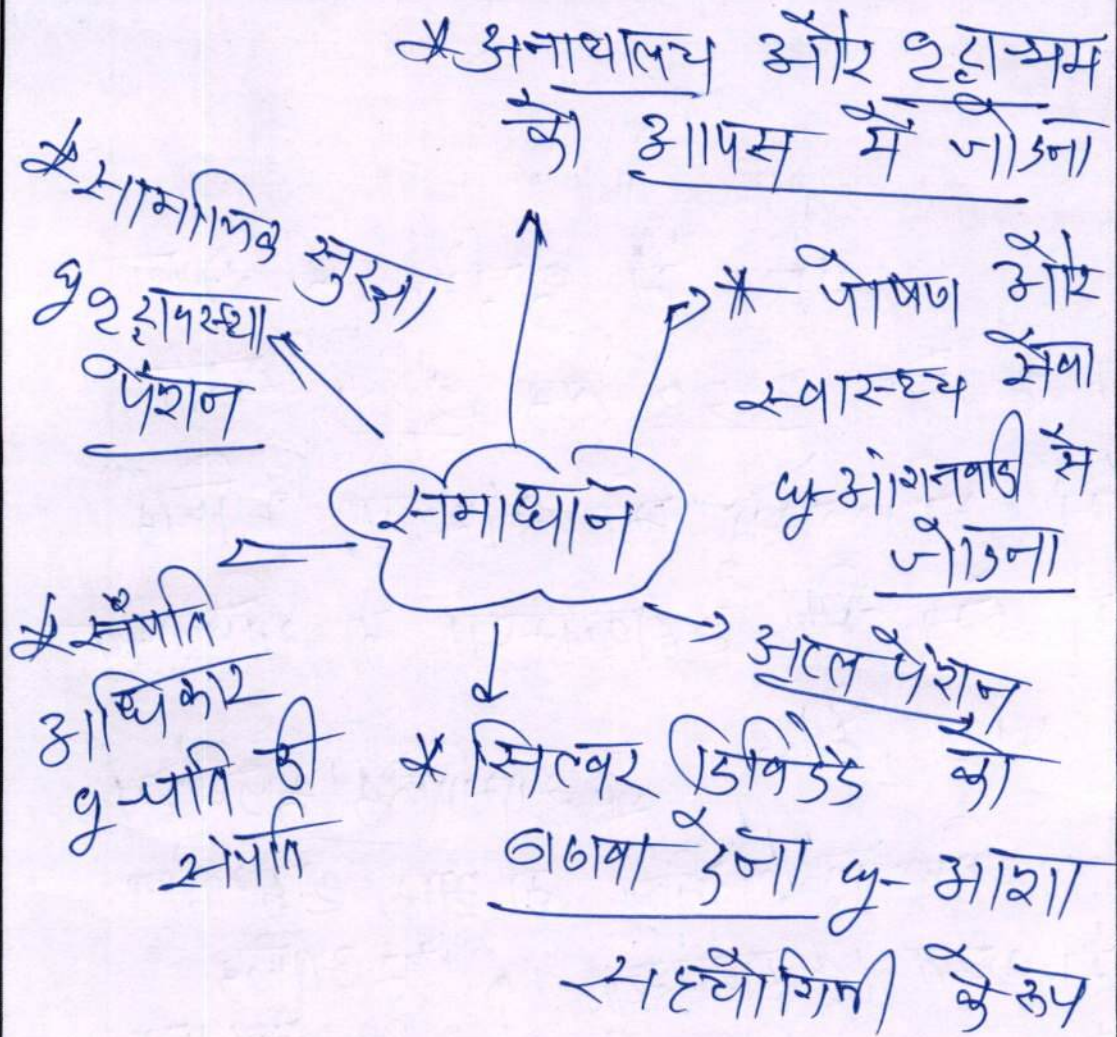 * अनाथालय और वृद्धाश्रम
को आपस में जोड़ना
* सामाजिक सुरक्षा
वृद्धावस्था
पेंशन
* पोषण और
स्वास्थ्य सेवा
आंगनवाड़ी से
जोड़ना
समाधान
* संपति
अधिकार
पति की
संपति
अटल पेंशन
* सिल्वर डिविडेंड को
बढावा देना आशा
सहयोगिनी के रूप